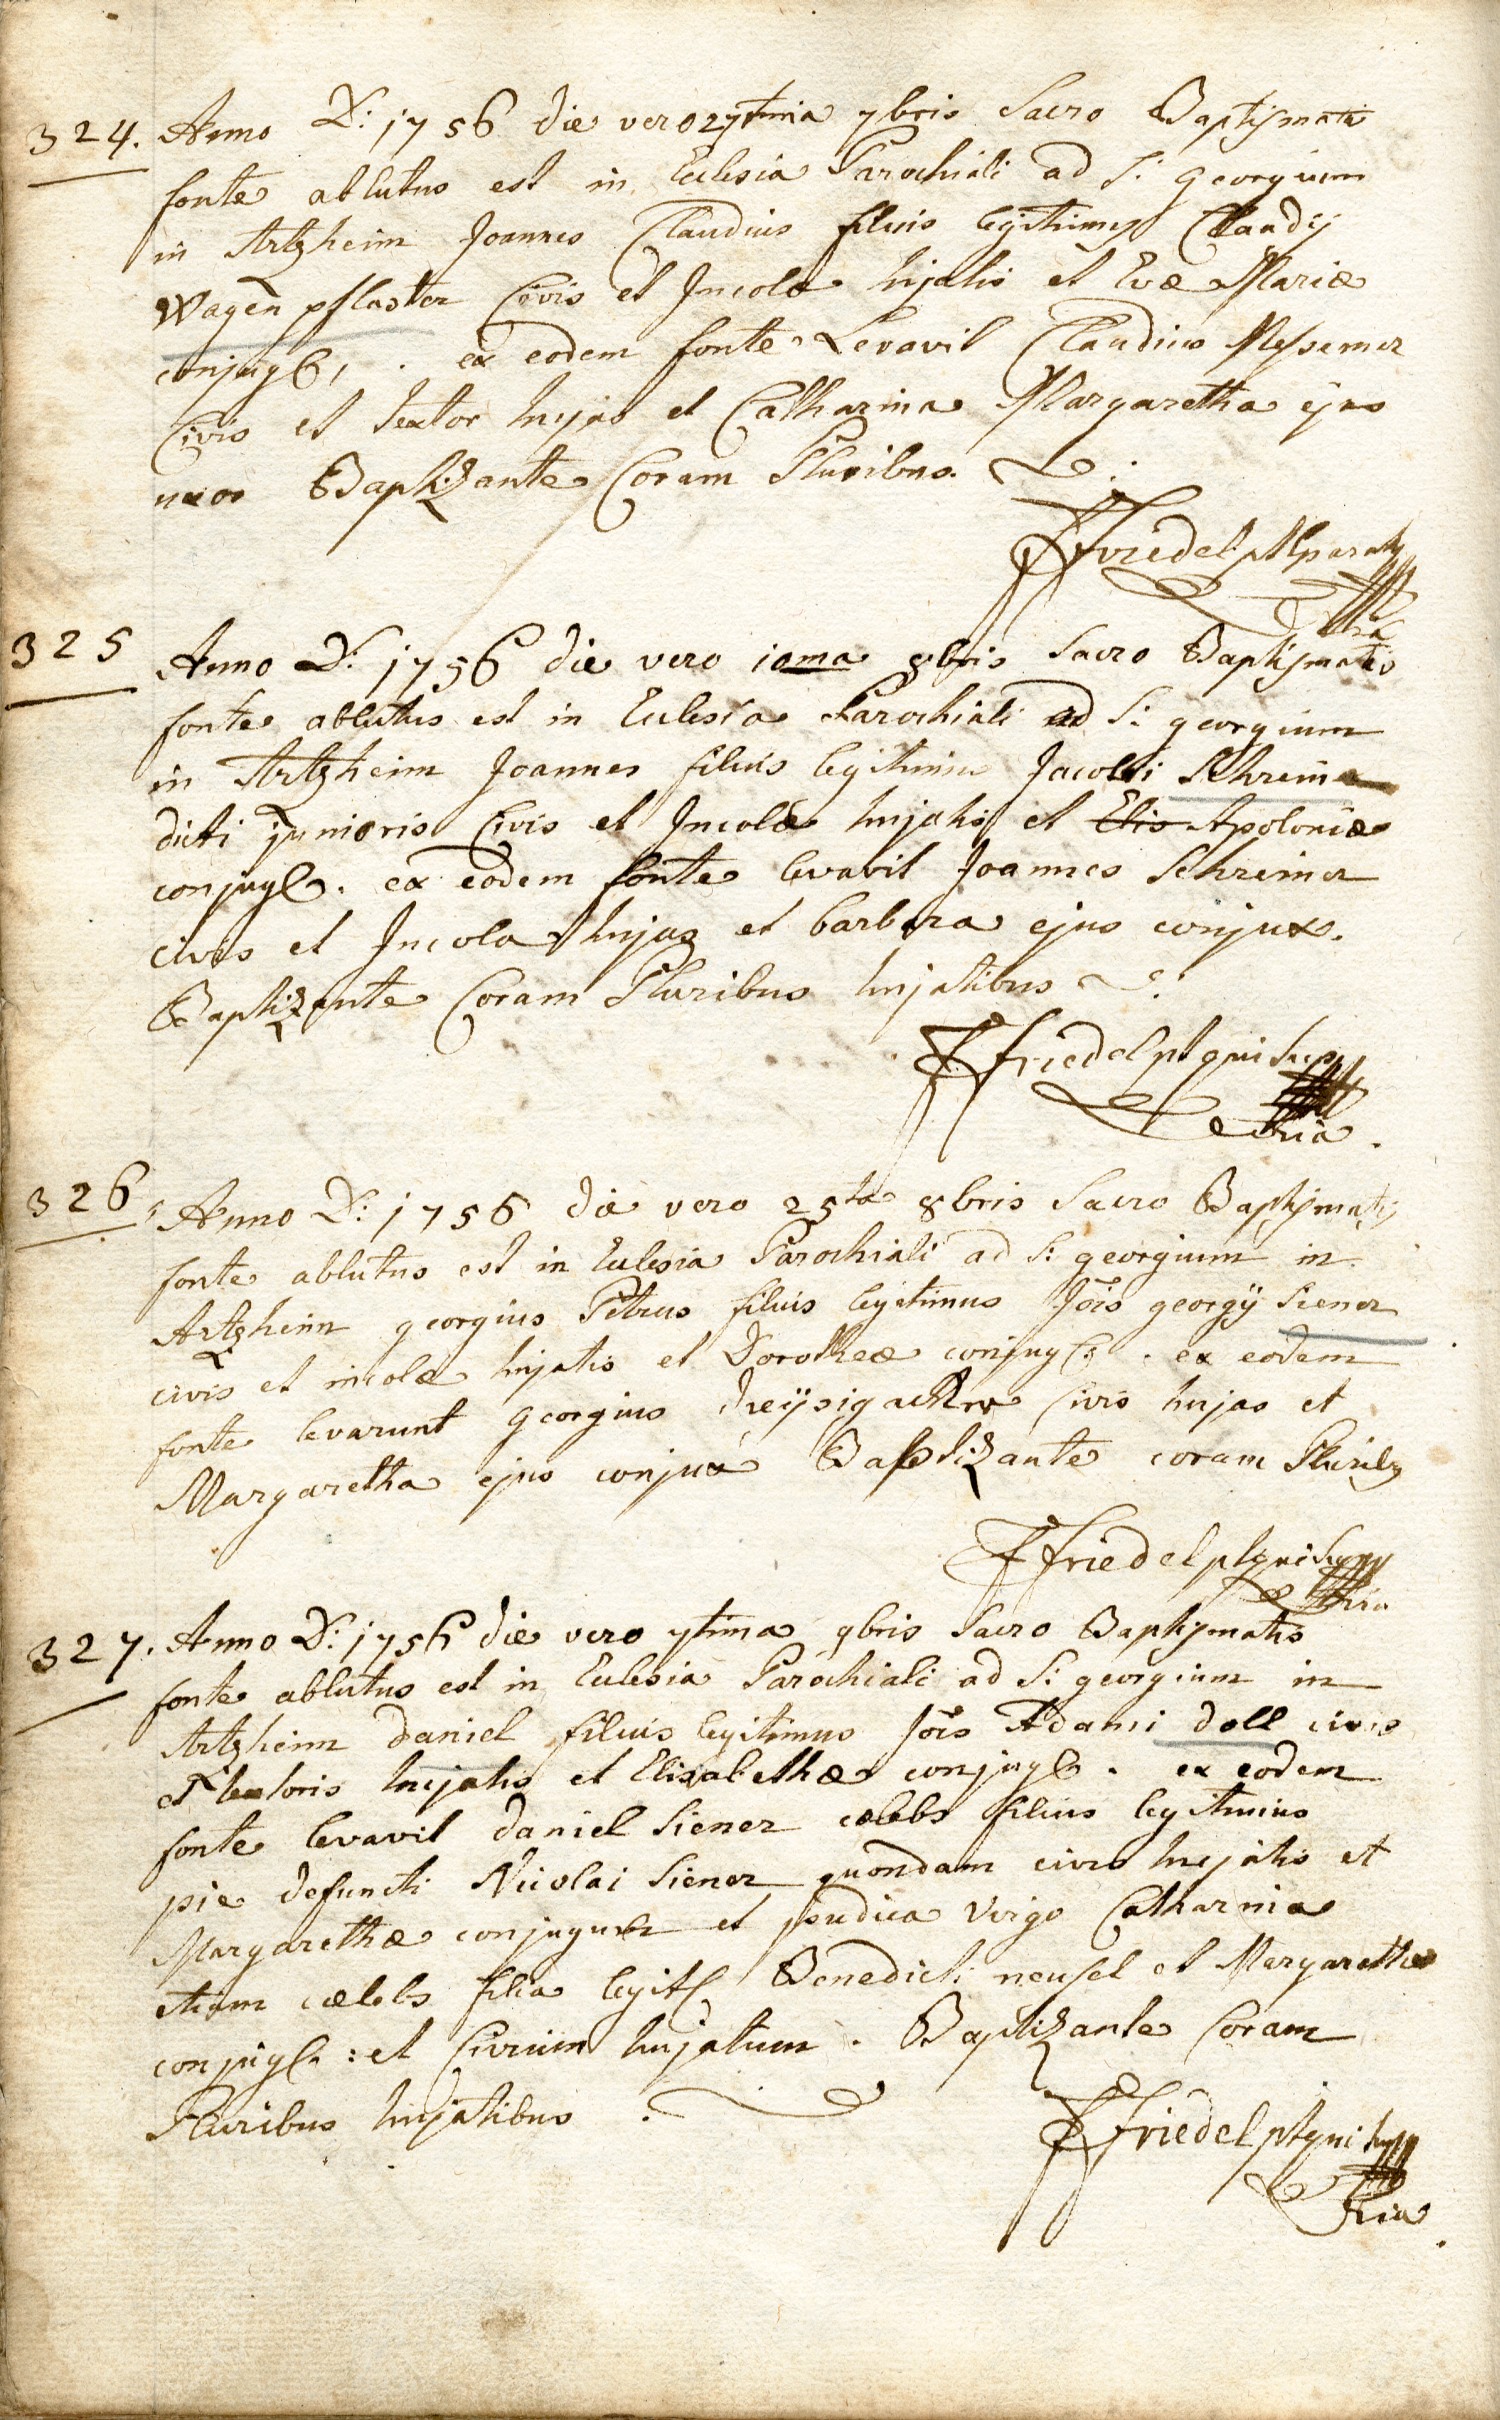 324. Anno D: 1756 die vero 27tima 7bris Sacro Baptismatis
fonte ablutus est in Eclesia Parochiali ad S: georgium
in Artzheim Joannes Claudius filius legitimus Claudij
Wagen pflaster Civis et Incolæ hujatis et Evæ Mariæ
conjug, . ex eodem fonte Levavit Claudius Messemer
Civis et textor hujas et Catharina Margaretha ejus
uxor Baptizante Coram Pluribus.
Ffriedel
325 Anno D: 1756 die vero 10ma 8bris Sacro Baptismatis
fonte ablutus est in Eclesia Parochiali ad S: georgium
in Artzheim Joannes filius legitimus Jacobi Schreiner
dicti junioris Civis et Incolæ hujatis et Elis Apoloniæ
conjug. ex eodem fonte levavit Joannes Schreiner
civis et Incola hujas et barbara ejus conjux.
Baptizante Coram Pluribus hujatibus
Ffriedel pt qui supr
326 Anno D: 1756 die vero 25ta 8bris Sacro Baptismatis
fonte ablutus est in Eclesia Parochiali ad S: georgium in
Artzheim georgius Petrus filius legitimus Jois georgij Siener
civis et incolæ hujatis et Dorotheæ conjug: . ex eodem
fonte levarunt georgius dreijsigacker Civis hujas et
Margaretha ejus conjux Baptizante coram Pluribus
Ffriedel pt qui supr
327. Anno D: 1756 die vero 7tima 9bris Sacro Baptismatis
fonte ablutus est in Eclesia Parochiali ad S: georgium in
Artzheim daniel filius legitimus Jois Adami doll civis
et textoris hujatis et Elisabethæ conjug. ex eodem
fonte levavit daniel Siener cælebs filius legitimus
pie defuncti Nicolai Siener quondam civis hujatis et
Margarethæ conjugum et pudica Virgo Catharina
etiam cælebs filia legit Benedicti neusel et Margarethæ
conjug : et Civium hujatum . Baptizante Coram
Pluribus hujatibus .
Ffriedel pt qui supr